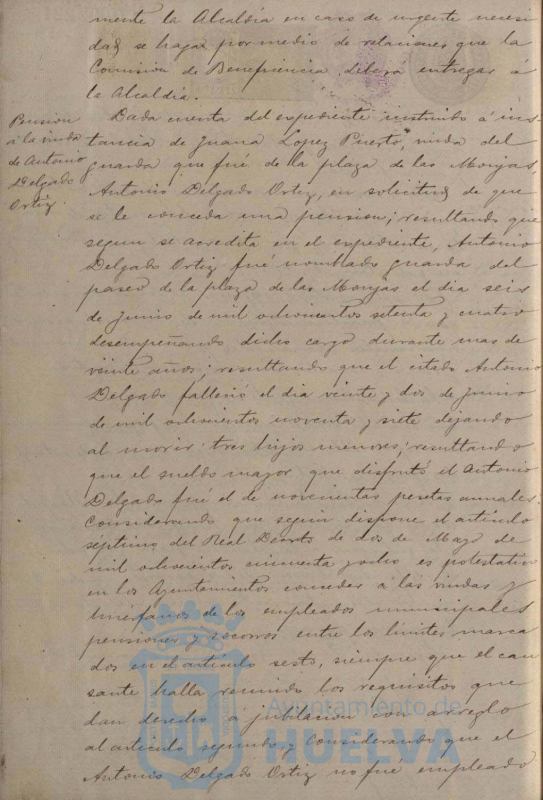 mente la Alcaldía en caso de urgente necesi
dad se hagan por medio de relaciones que la
Comision de Beneficencia deberá entregar á
la Alcaldía.
Pension
á la viuda
de Antonio
Delgado
Ortiz.
Dada cuenta del espediente instruido á ins
tancia de Juana Lopez Puerto, viuda del
guarda que fué de la plaza de las Monjas,
Antonio Delgado Ortiz, en solicitud de que
se le conceda una pension; resultando que
segun se acredita en el espediente, Antonio
Delgado Ortiz fué nombrado guarda del
paseo de la plaza de las Monjas el dia seis
de Junio de mil ochocientos setenta y cuatro
desempeñando dicho cargo durante mas de
veinte años; resultando que el citado Antonio
Delgado falleció el dia veinte y dos de Junio
de mil ochocientos noventa y siete dejando
al morir tres hijos menores; resultando
que el sueldo mayor que disfrutó el Antonio
Delgado fué el de novecientas pesetas annales.
Considerando que segun dispone el artículo
séptimo del Real Decreto de dos de Mayo de
mil ochocientos cincuenta y ocho es potestativo
en los Ayuntamientos conceder á las viudas y
huérfanos de los empleados municipales
pensiones y socorros entre los límites marca
dos en el artículo sesto, siempre que el cau
sante halla reunido los requisitos que
dan derecho á jubilacion con arreglo
al artículo segundo, y Considerando que el
Antonio Delgado Ortiz no fué empleado
Ayuntamiento de
HUELVA